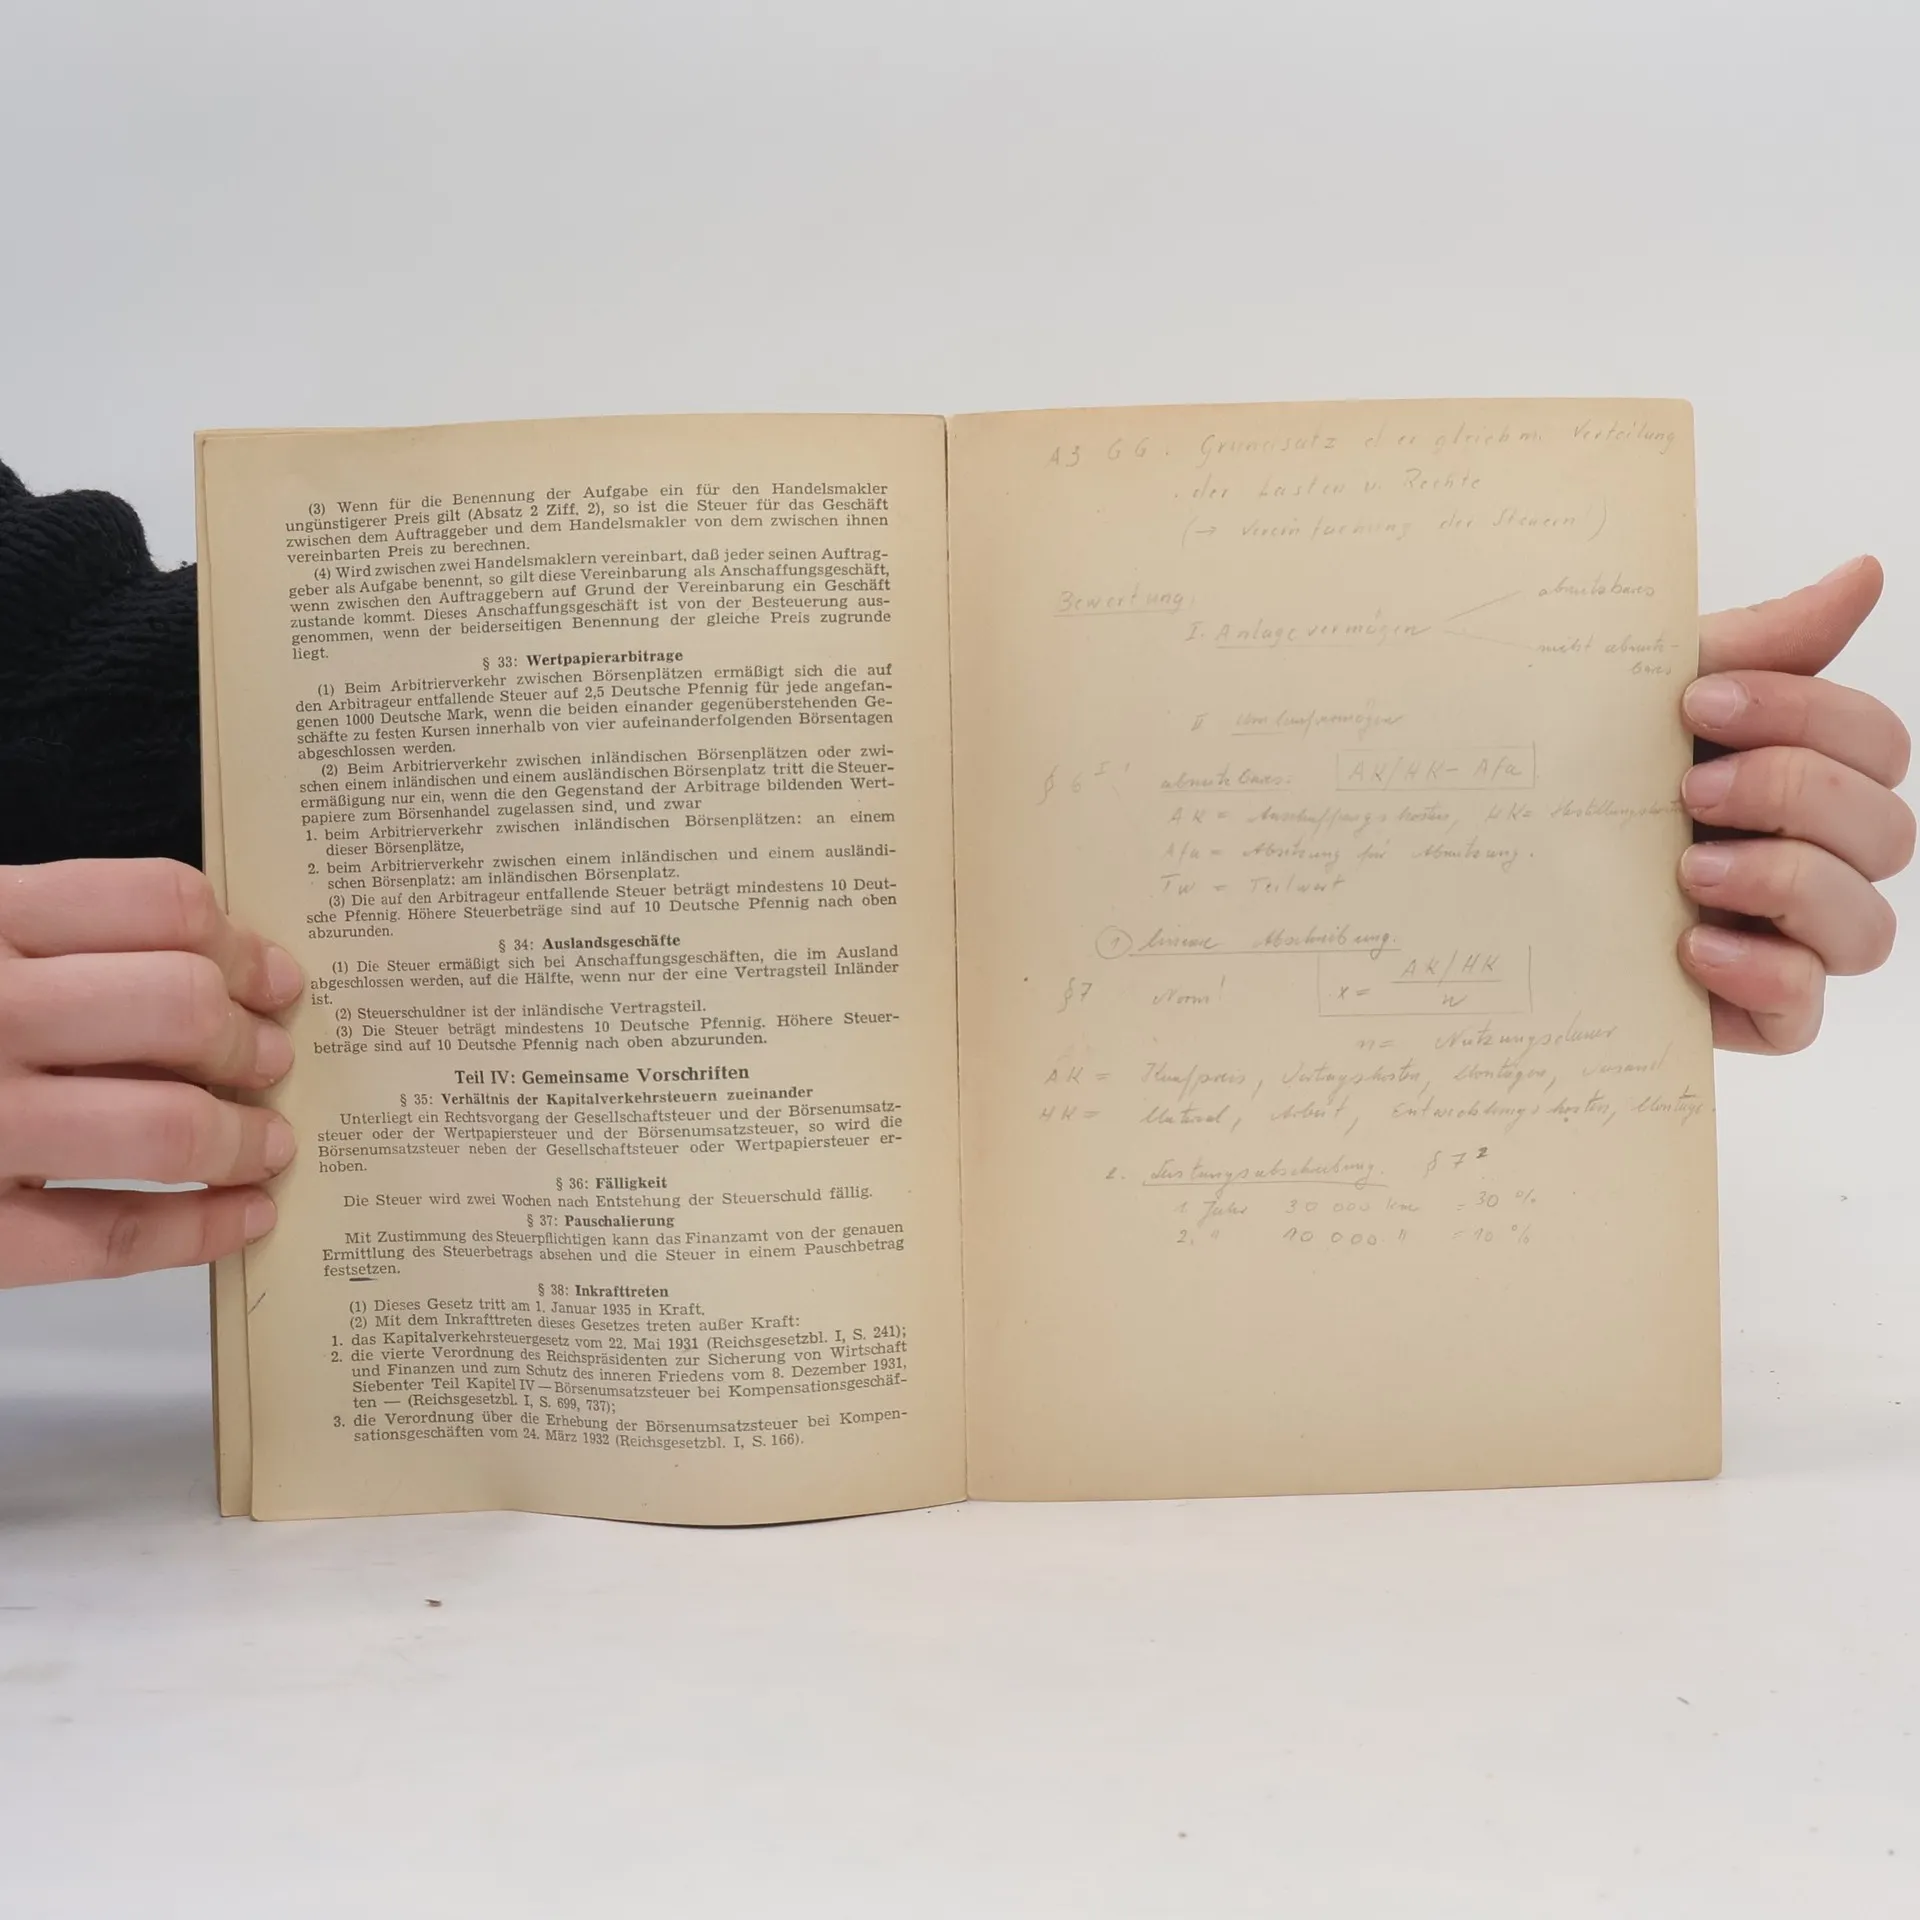 (3) Wenn für die Benennung der Aufgabe ein für den Handelsmakler
ungünstigerer Preis gilt (Absatz 2 Ziff. 2), so ist die Steuer für das Geschäft
zwischen dem Auftraggeber und dem Handelsmakler von dem zwischen ihnen
vereinbarten Preis zu berechnen.
(4) Wird zwischen zwei Handelsmaklern vereinbart, daß jeder seinen Auftrag-
geber als Aufgabe benennt, so gilt diese Vereinbarung als Anschaffungsgeschäft,
wenn zwischen den Auftraggebern auf Grund der Vereinbarung ein Geschäft
zustande kommt. Dieses Anschaffungsgeschäft ist von der Besteuerung aus-
genommen, wenn der beiderseitigen Benennung der gleiche Preis zugrunde
liegt.
§ 33: Wertpapierarbitrage
(1) Beim Arbitrierverkehr zwischen Börsenplätzen ermäßigt sich die auf
den Arbitrageur entfallende Steuer auf 2,5 Deutsche Pfennig für jede angefan-
genen 1000 Deutsche Mark, wenn die beiden einander gegenüberstehenden Ge-
schäfte zu festen Kursen innerhalb von vier aufeinanderfolgenden Börsentagen
abgeschlossen werden.
(2) Beim Arbitrierverkehr zwischen inländischen Börsenplätzen oder zwi-
schen einem inländischen und einem ausländischen Börsenplatz tritt die Steuer-
ermäßigung nur ein, wenn die den Gegenstand der Arbitrage bildenden Wert-
papiere zum Börsenhandel zugelassen sind, und zwar
1. beim Arbitrierverkehr zwischen inländischen Börsenplätzen: an einem
dieser Börsenplätze,
2. beim Arbitrierverkehr zwischen einem inländischen und einem ausländi-
schen Börsenplatz: am inländischen Börsenplatz.
(3) Die auf den Arbitrageur entfallende Steuer beträgt mindestens 10 Deut-
sche Pfennig. Höhere Steuerbeträge sind auf 10 Deutsche Pfennig nach oben
abzurunden.
§ 34: Auslandsgeschäfte
(1) Die Steuer ermäßigt sich bei Anschaffungsgeschäften, die im Ausland
abgeschlossen werden, auf die Hälfte, wenn nur der eine Vertragsteil Inländer
ist.
(2) Steuerschuldner ist der inländische Vertragsteil.
(3) Die Steuer beträgt mindestens 10 Deutsche Pfennig. Höhere Steuer-
beträge sind auf 10 Deutsche Pfennig nach oben abzurunden.
Teil IV: Gemeinsame Vorschriften
§ 35: Verhältnis der Kapitalverkehrsteuern zueinander
Unterliegt ein Rechtsvorgang der Gesellschaftsteuer und der Börsenumsatz-
steuer oder der Wertpapiersteuer und der Börsenumsatzsteuer, so wird die
Börsenumsatzsteuer neben der Gesellschaftsteuer oder Wertpapiersteuer er-
hoben.
§ 36: Fälligkeit
Die Steuer wird zwei Wochen nach Entstehung der Steuerschuld fällig.
§ 37: Pauschalierung
Mit Zustimmung des Steuerpflichtigen kann das Finanzamt von der genauen
Ermittlung des Steuerbetrags absehen und die Steuer in einem Pauschbetrag
festsetzen.
§ 38: Inkrafttreten
(1) Dieses Gesetz tritt am 1. Januar 1935 in Kraft.
(2) Mit dem Inkrafttreten dieses Gesetzes treten außer Kraft:
1. das Kapitalverkehrsteuergesetz vom 22. Mai 1931 (Reichsgesetzbl. I, S. 241);
2. die vierte Verordnung des Reichspräsidenten zur Sicherung von Wirtschaft
und Finanzen und zum Schutz des inneren Friedens vom 8. Dezember 1931,
Siebenter Teil Kapitel IV — Börsenumsatzsteuer bei Kompensationsgeschäf-
ten — (Reichsgesetzbl. I, S. 699, 737);
3. die Verordnung über die Erhebung der Börsenumsatzsteuer bei Kompen-
sationsgeschäften vom 24. März 1932 (Reichsgesetzbl. I, S. 166).
A3 GG. Grundsatz der gleichm. Verteilung
der Lasten u. Rechte
(→ Vereinfachung der Steuern!)
Bewertung:
I. Anlagevermögen
abnutzbares
nicht abnutz-
bares
II Umlaufvermögen
§ 6 I! abnutzbares: AK/HK – Afa
AK = Anschaffungskosten, HK = Herstellungskosten
Afa = Absetzung für Abnutzung.
TW = Teilwert
1) lineare Abschreibung.
§7 Norm! x = AK/HK
n
n = Nutzungsdauer
AK = Kaufpreis, Montagen, Versand
HK = Material, Arbeit, Entwicklungskosten, Montage.
2. Leistungsabschreibung. § 7 2
1. Jahr 30 000 km = 30 %
2. " 10 000 " = 10 %